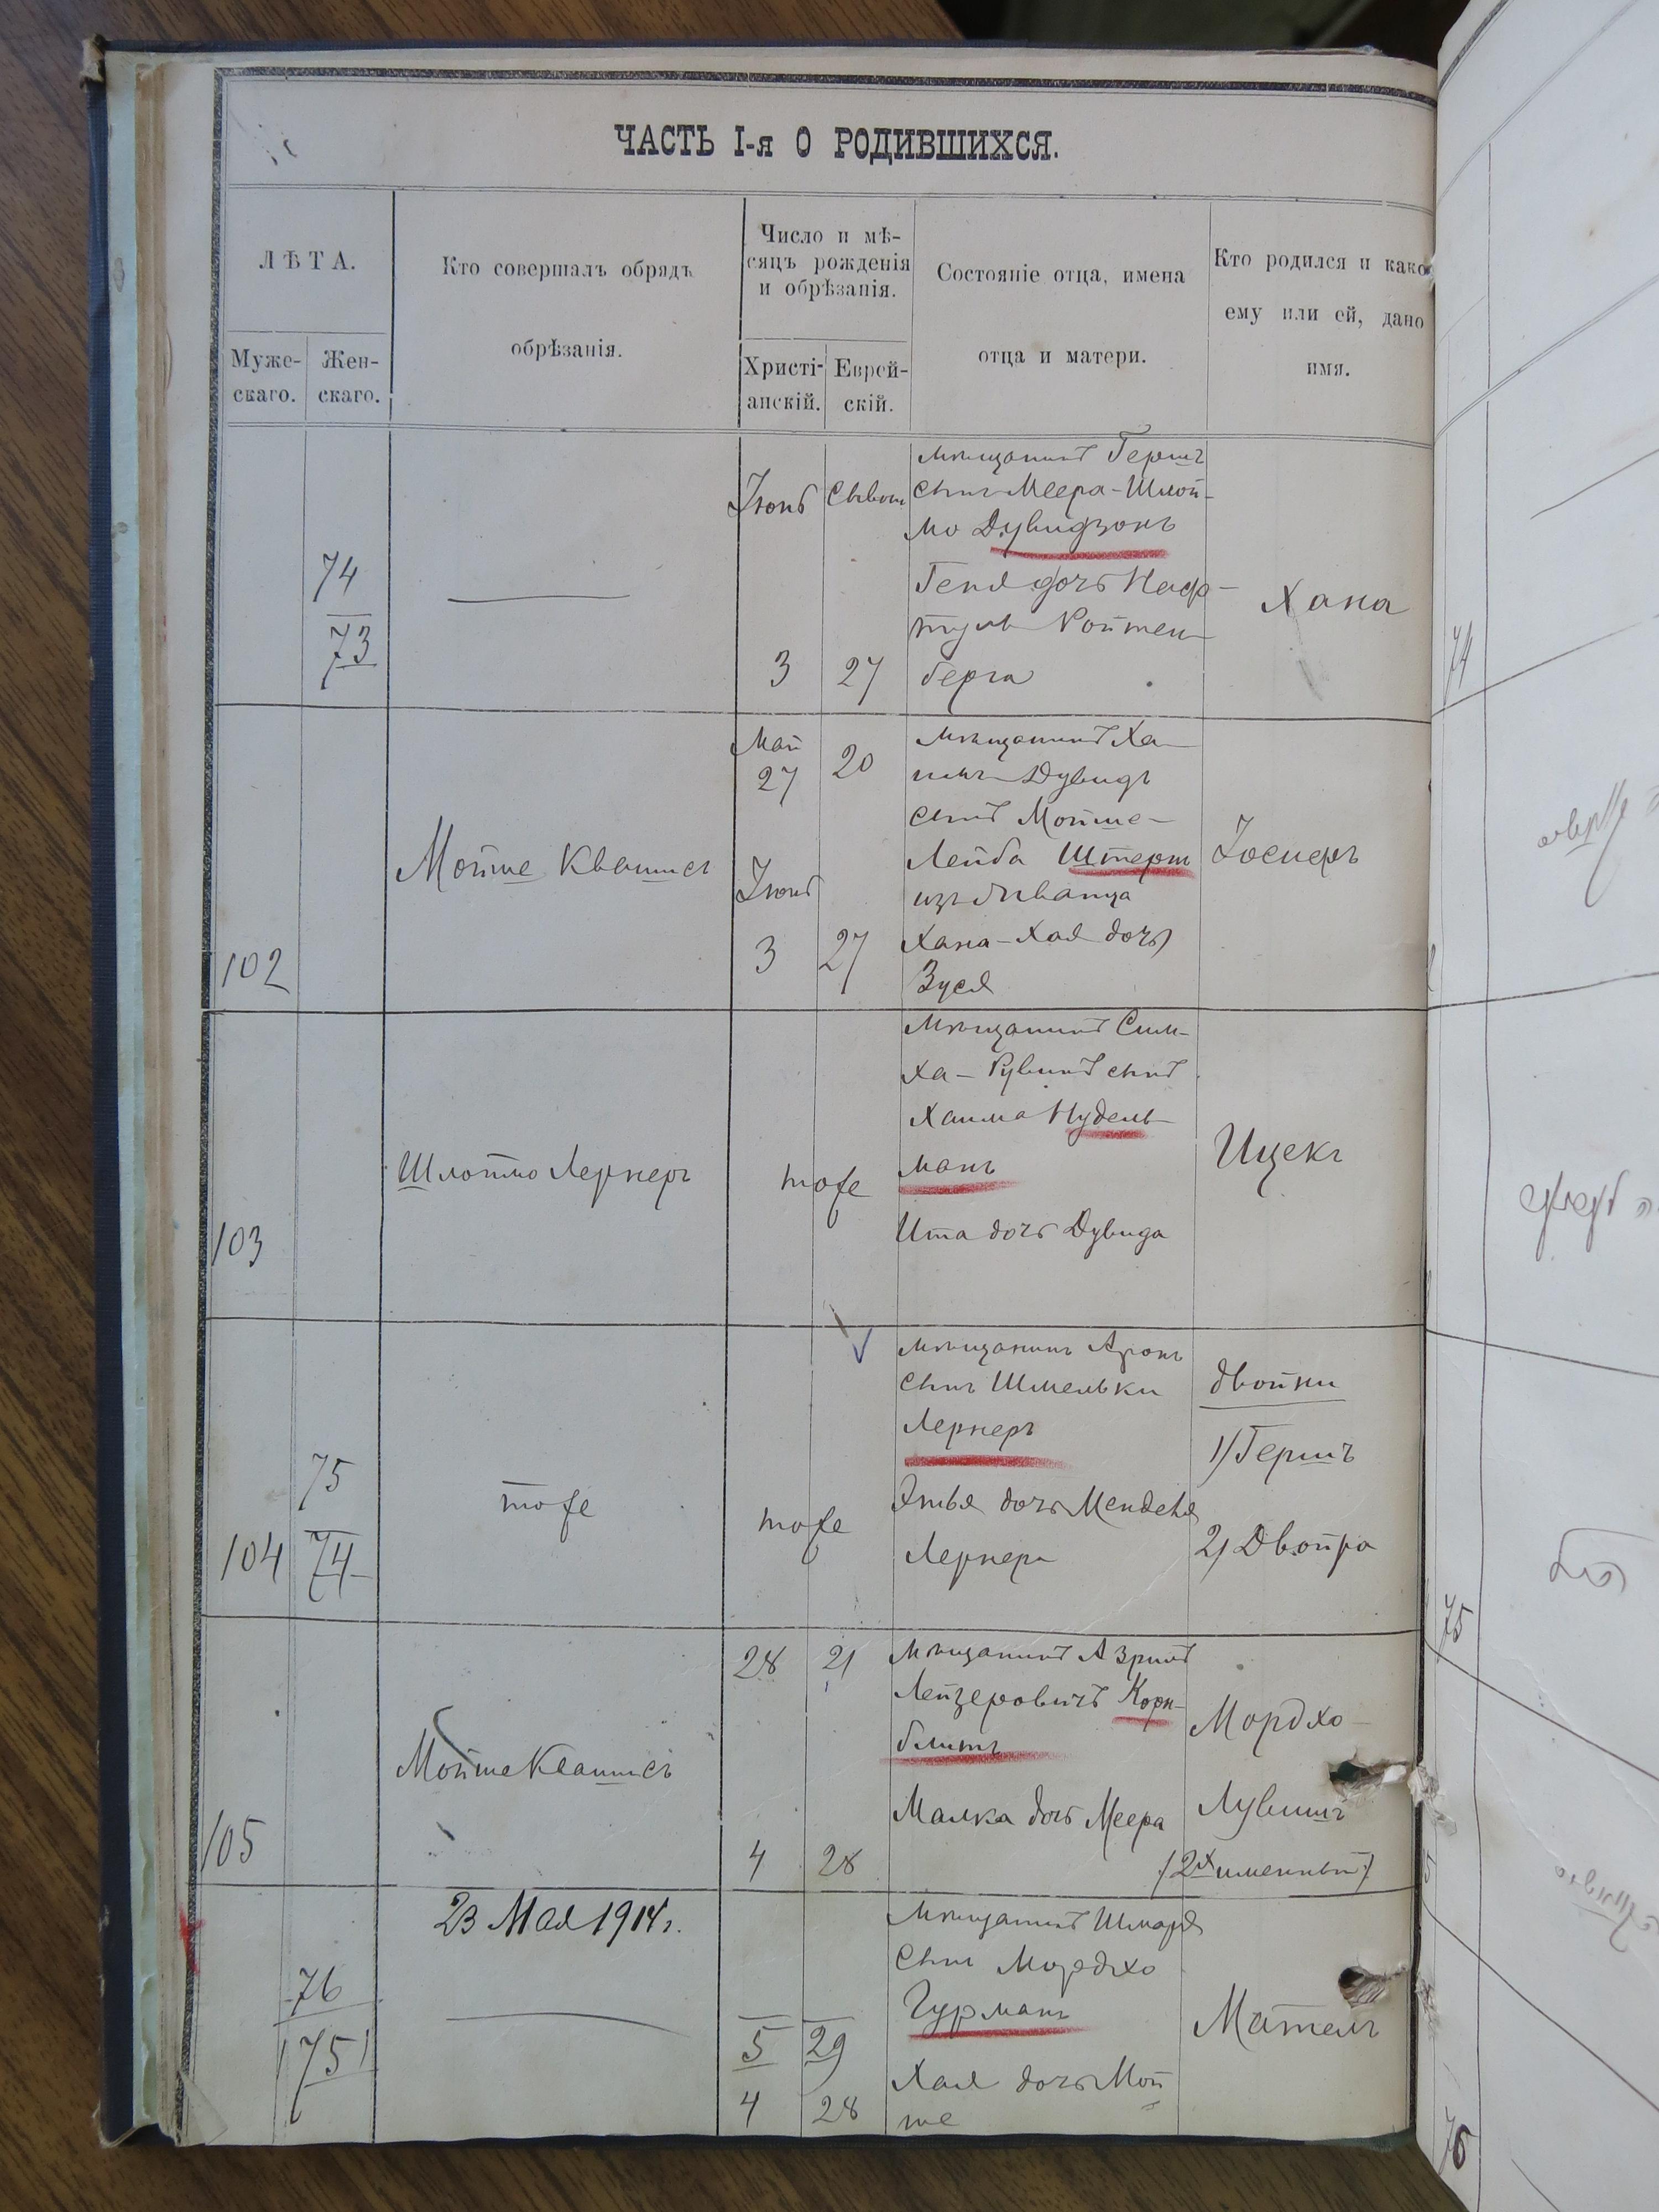 ЧАСТЬ I-я О РОДИВШИХСЯ.
ЛѢТА.
Муже-
скаго.
Жен-
скаго.
Кто совершалъ обрядъ
обрѣзанія.
Число и мѣ-
сяцъ рожденія
и обрѣзанія.
Христі-
анскій.
Еврей-
скій.
Состояніе отца, имена
отца и матери.
Кто родился и како
ему или ей, дано
имя.
74
73
Іюнь
3
27
мѣщанинъ Гершъ
сынъ Меера-Шлой-
мо Дувидзонъ
Геня дочь Наф-
тулы Ройтен-
берга
Хана
102
Мойше Квашисъ
Май
27
20
Іюнь
3
27
мѣщанинъ Ха-
имъ Дувидъ
сынъ Мойше-
Лейба Штернъ
изъ
Хана-Хая дочь
Зуся
Іосифъ
103
Шлоймо Лернеръ
тоже
мѣщанинъ Сим-
ха-Рувинъ сынъ
Хаима Нудель-
манъ
Ита дочь Дувида
Ицекъ
104
75
74
тоже
тоже
мѣщанинъ Аронъ
сынъ Шмельки
Лернеръ
Этья дочь Менделя
Лернера
двойни
1) Гершъ
2) Двойра
105
Мойше Квашисъ
28
21
4
28
мѣщанинъ Азрилъ
Лейзеровичъ Корн-
блитъ
Малка дочь Меера
Мордхо-
Лувишъ
(2х именный)
76
75
23 Мая 1914 г.
5
29
4
28
мѣщанинъ Шмаря
сынъ Мордхо
Гурманъ
Хая дочь Мой
ше
Мателъ
74
75
76